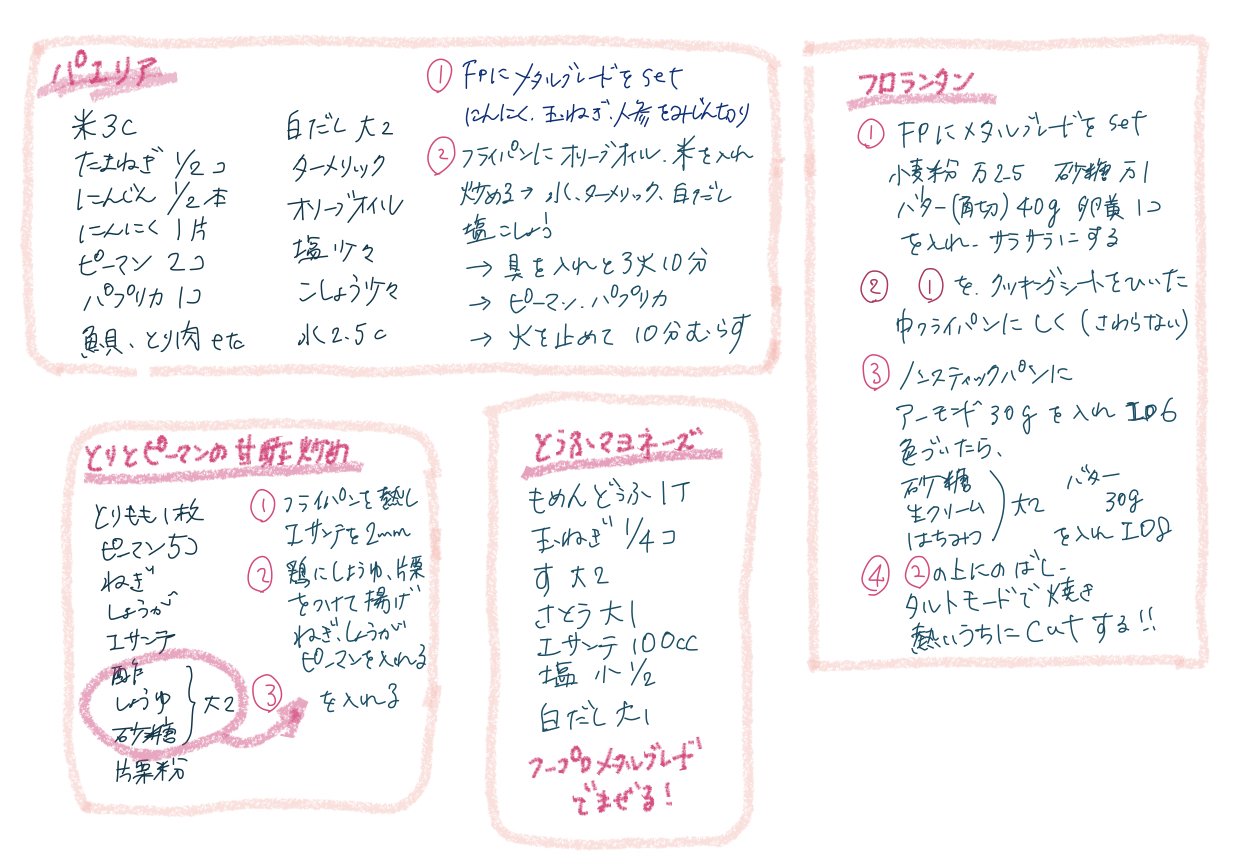 パエリア
米 3C
たまねぎ 1/2コ
にんじん 1/2本
にんにく 1片
ピーマン 2コ
パプリカ 1コ
魚貝、とり肉 etc
白だし 大2
ターメリック
オリーブオイル
塩少々
こしょう少々
水 2.5c
① FPにメタルブレードを set
にんにく、玉ねぎ、人参をみじん切り
② フライパンにオリーブオイル、米を入れ
炒める→ 水、ターメリック、白だし
塩こしょう
→ 具を入れと3火10分
→ ピーマン、パプリカ
→ 火を止めて 10分むらす
フロランタン
① FPにメタルブレードを set
小麦粉 万25 砂糖 万1
バター(角切) 40g 卵黄 1コ
を入れ、サラサラにする
② ①を、クッキングシートをひいた
中フライパンに しく (さわらない)
③ ノンスティックパンに
アーモンド 30g を入れ ID6
色づいたら、
砂糖
生クリーム
はちみつ
大2
バター
30g
を入れ ID8
④ ②の上にのばし、
タルトモードで焼き
熱いうちに Cut する!!
とりとピーマンの甘酢炒め
とりもも 1枚
ピーマン 5コ
ねぎ
しょうが
エサンテ
酢
しょうゆ
砂糖
大2
片栗粉
① フライパンを熱し
エサンテを 2mm
② 鶏にしょうゆ、片栗
をつけて揚げ
ねぎ、しょうが
ピーマンを入れる
③ を入れる
とうふマヨネーズ
もめんどうふ 1丁
玉ねぎ 1/4コ
す 大2
さとう 大1
エサンテ 100cc
塩 小 1/2
白だし 大1
フープロ メタルブレード
でまぜる!